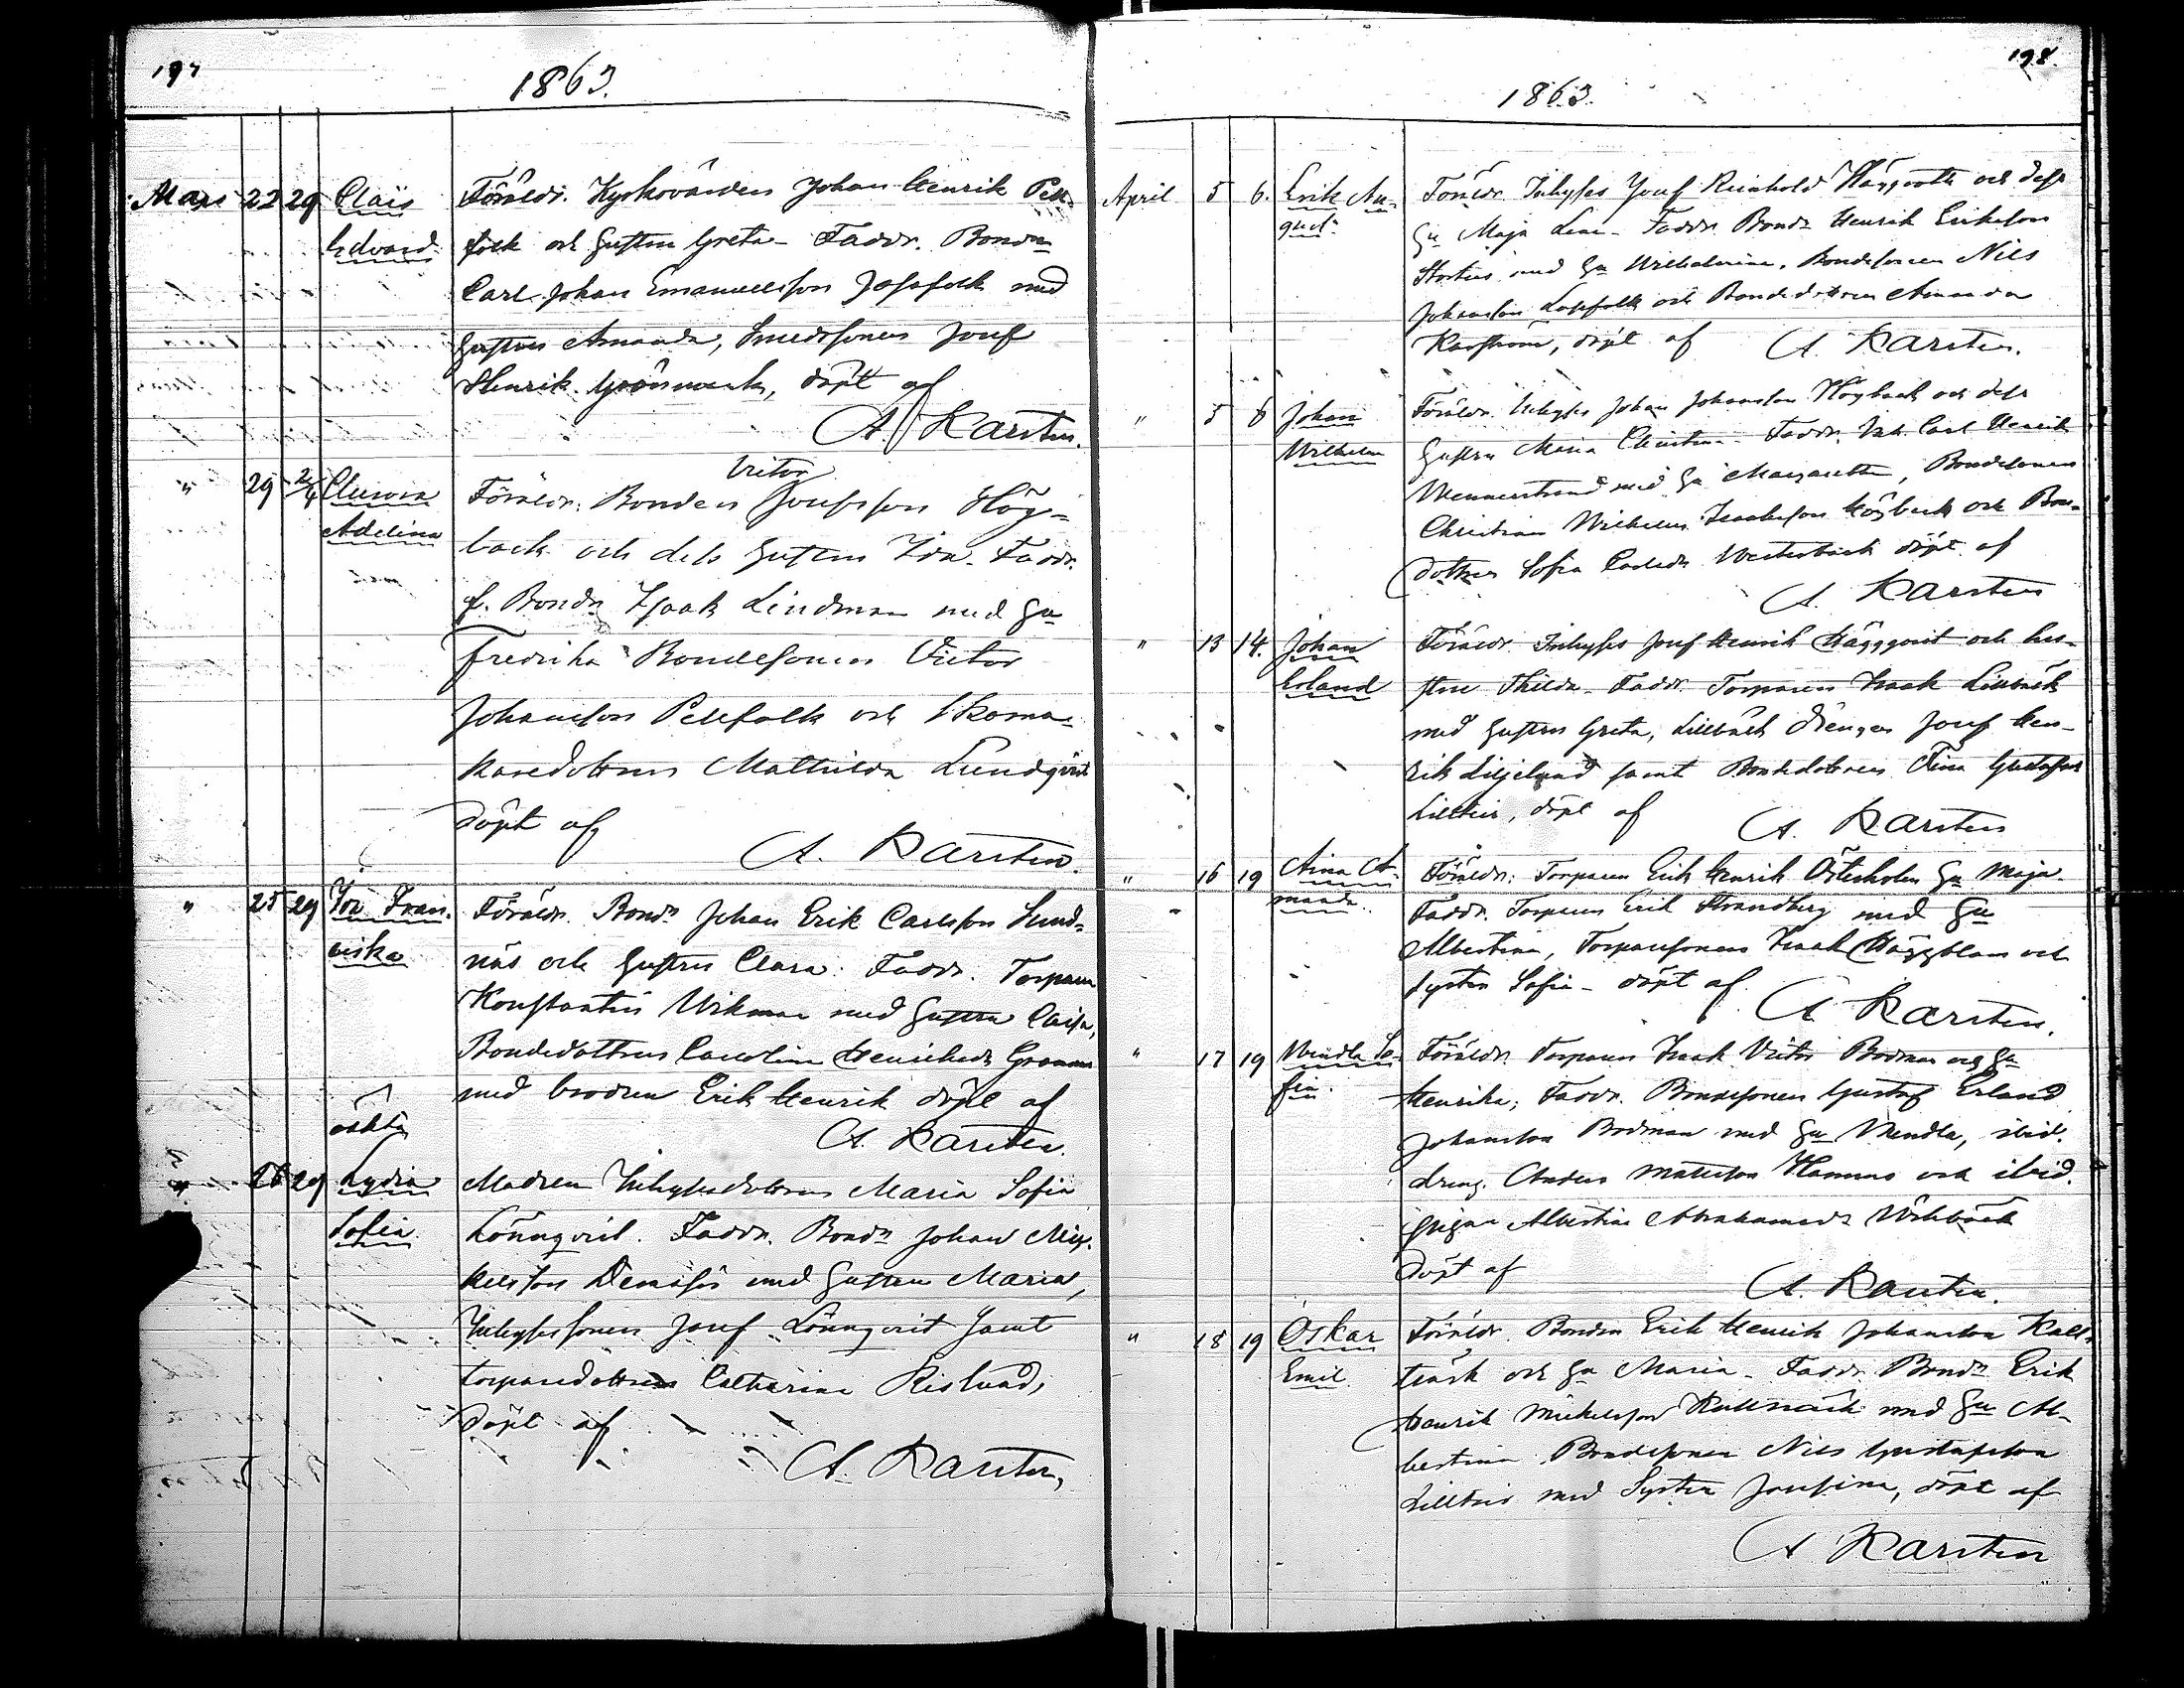 197
1863.
Mars 22 29 Claïs Föräldr. Kyrkovärden Johan Henrik Pell-
Edvard folk och Hustrun Greta - Faddr. Bondn
Carl Johan Emanuelsson Jossfolk med
Hustrun Amanda, Smedsonen Josef
Henrik Grönmark, döpt af
A. Karsten.
" 29 2/4 Victor
Adelina Föräldr. Bonden Josefsson Hög-
back och dess Hustru Ida. Faddr.
f. Bondn Isaak Lindman med Hu
Fredrika Bondesonen Victor
Johansson Pellfolk och Skoma-
karedottren Mathilda Lundqvist
döpt af
A. Karsten.
" 25 29 Ida Fran- Föräldr. Bondn Johan Erik Carlsson Sund-
ciska näs och Hustrun Clara. Faddr. Torparen
Konstantin Wikman med Hustrun Caisa,
Bondedottren Carolina Henriksdr
med brodren Erik Henrik döpt af
A. Karsten.
oäkta
" 28 29 Lydia Modren Inhysesdottren Maria Sofia
Sofia Lönnqvist. Faddr. Bondn Johan Mic-
kelsson med Hustrun Maria,
Inhysessonen Josef Lönnqvist samt
torparedottren Catharina Risland,
döpt af
A. Karsten,
198.
1863.
April 5 6. Erik Au- Föräldr. Inhyses Josef Reinhold Häggroth och dess
gust Hu Maja Lena - Faddr. Bondn Henrik Eriksson
med Hu Wilhelmina, Bondesonen Nils
Johansson och Bondedottren Amanda
döpt af A. Karsten.
" 5 6 Johan Föräldr. Inhyses Johan Johansson Högback och dess
Wilhelm Hustru Maria Christina - Faddr. Inh. Carl Henrik
Wennerstrand med Hu Margaretha, Bondesonen
Christian Wilhelm Isaksson Högback och Bon-
dottren Sofia Carlsdr Westerback döpt af
A. Karsten
" 13 14. Johan Föräldr. Inhyses Josef Henrik Häggqvist och hu-
Erland strun Thilda - Faddr. Torparen Isaak Lillbäck
med Hustrun Greta, Lillbäck drengen Josef Hen-
rik Liljelund samt Bondedottren Tina
döpt af A. Karsten
" 16 19 Aina A- Föräldr: Torparen Erik Henrik Österholm Hu Maja
manda. Faddr. Torparen Erik Strandberg med Hu
Albertina, Torparesonen Isaak Häggblom och
Syster Sofia - döpt af A. Karsten.
" 17 19 Wendla So- Föräldr. Torparen Isaak Victor Bodman och Hu
fia. Henrika, Faddr. Bondesonen Gustaf Erland
Johansson Bodman med Hu Wendla, ibid.
dreng. Anders Mattsson och ibid.
pigan Albertina Abrahamsdr
döpt af
A. Karsten.
" 18 19 Oskar Föräldr. Bonden Erik Henrik Johansson Kall-
Emil träsk och Hu Maria - Faddr. Bondn Erik
Henrik Mickelsson med Hu Al-
bertina Bondesonen Nils Gustafsson
med Syster Josefina, döpt af
A Karsten